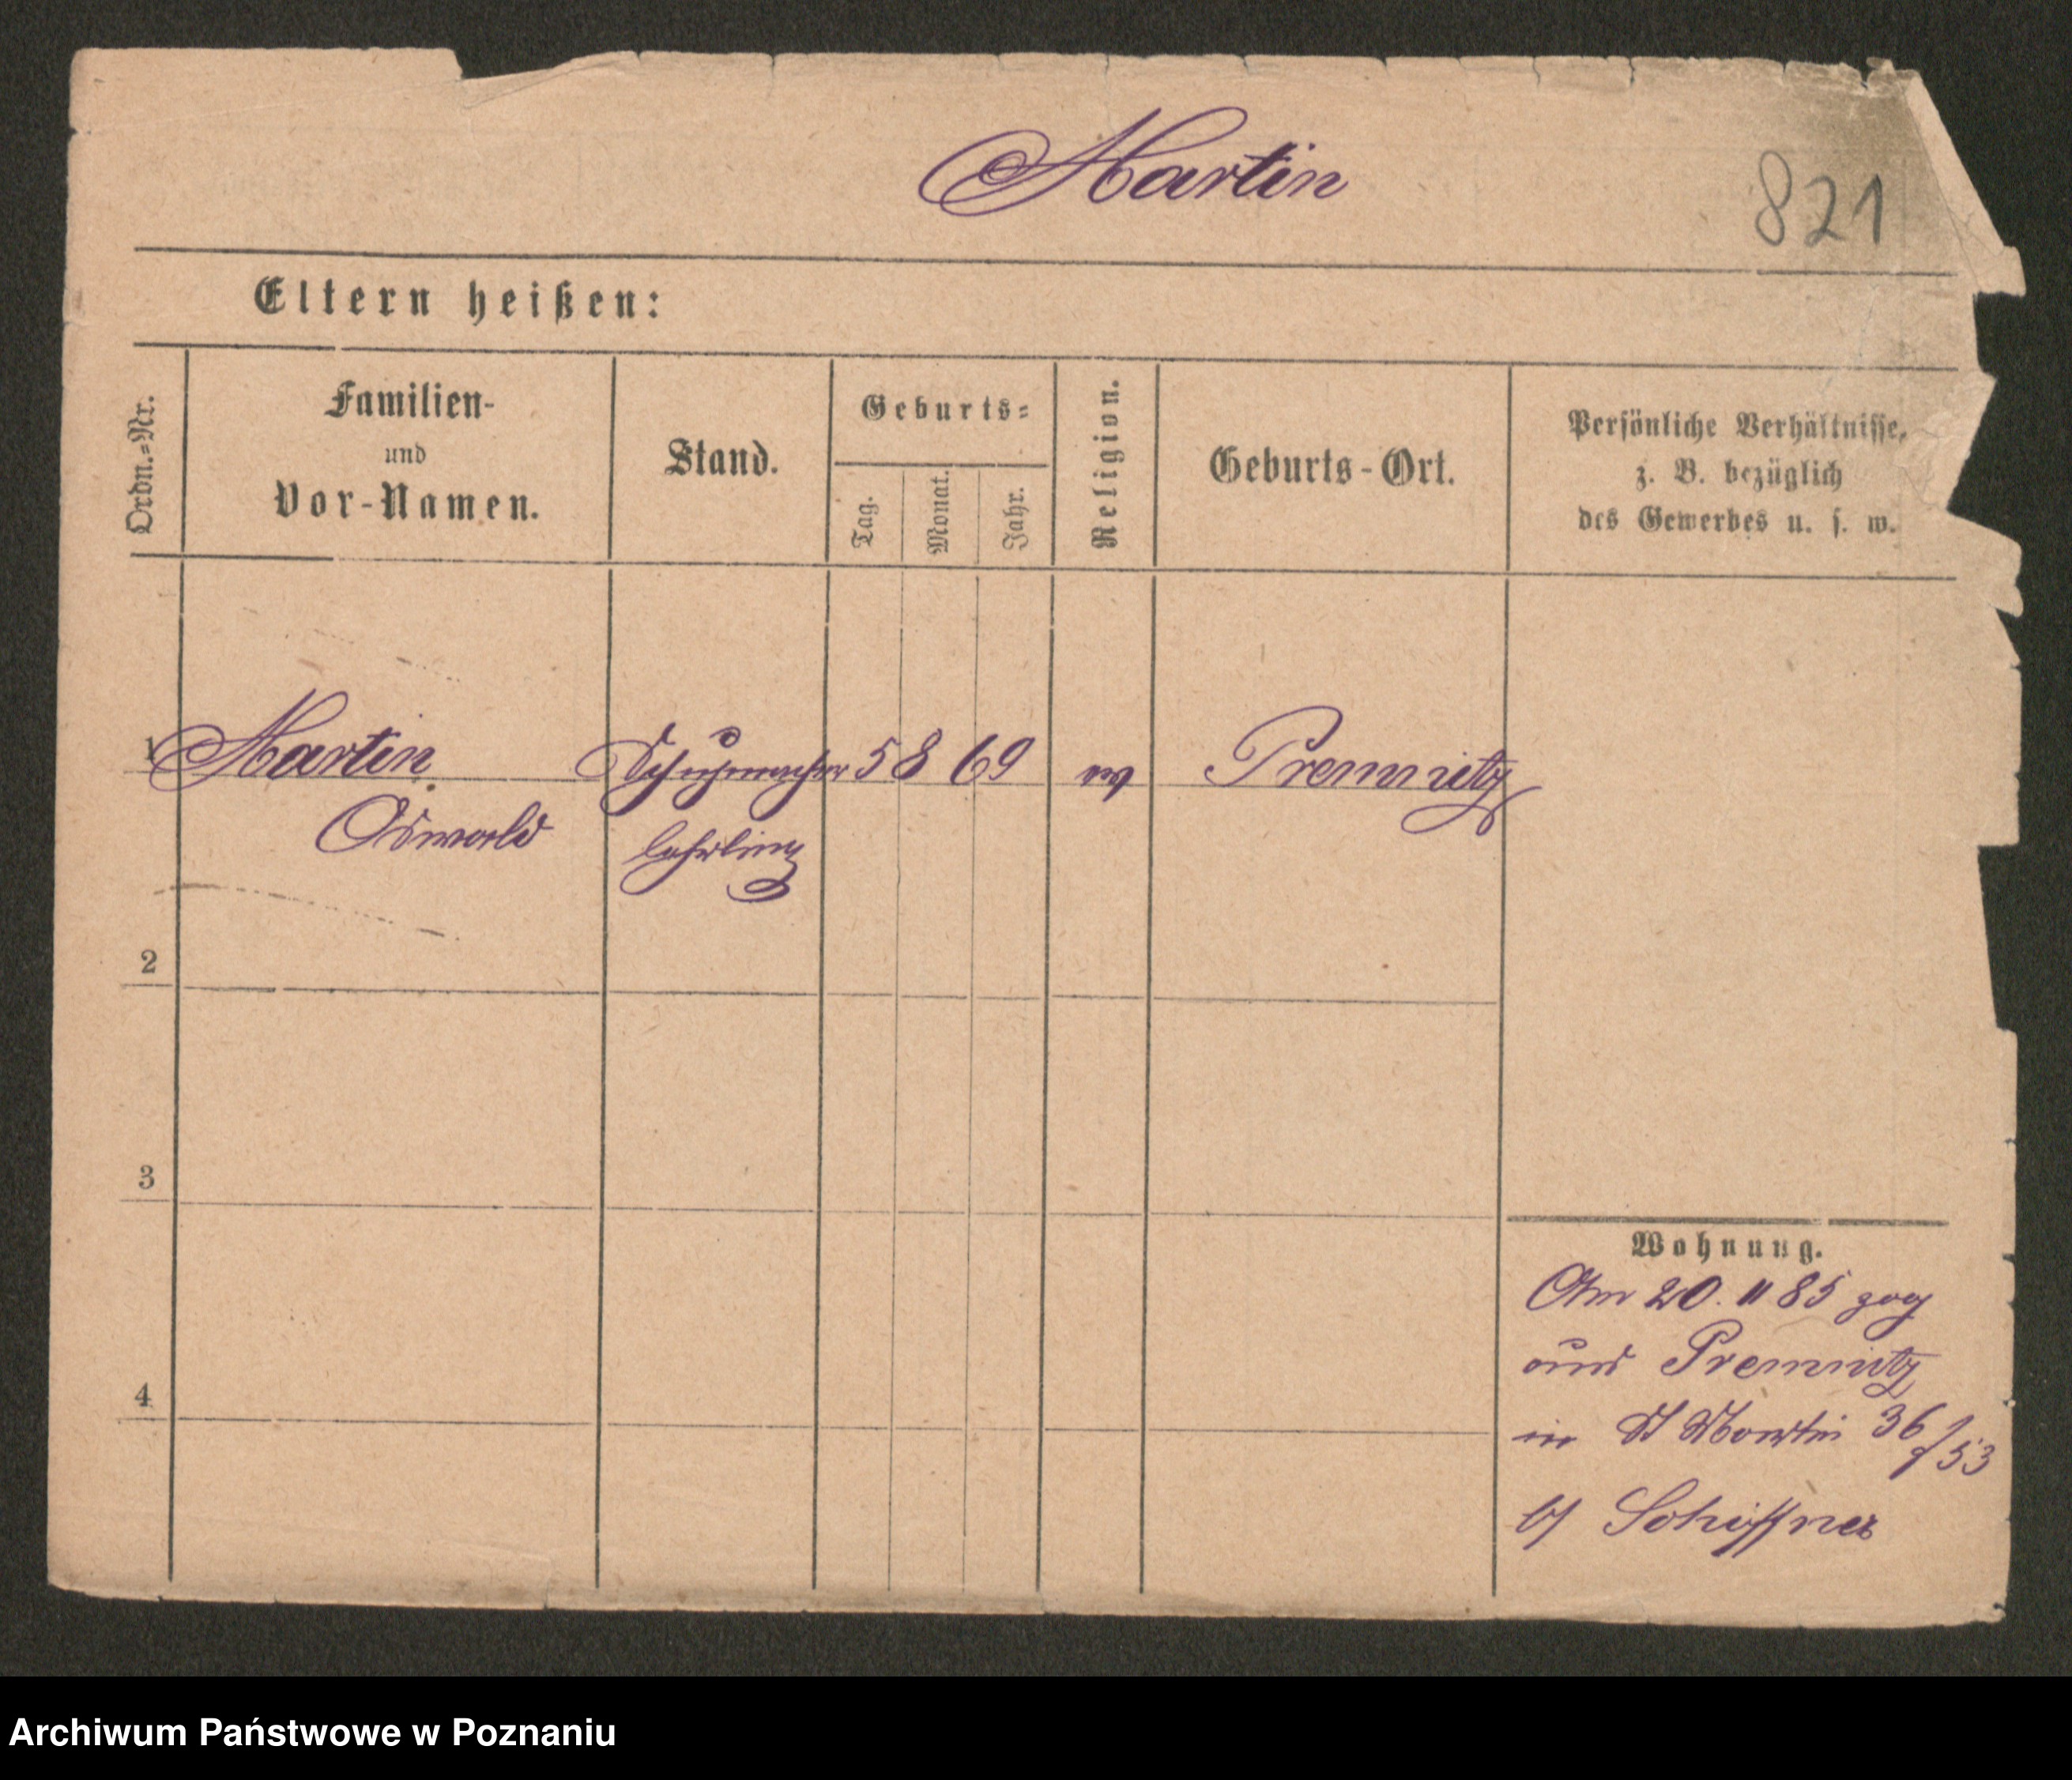 Martin
821
Eltern heißen:
Ordn.-Nr.
Familien-
und
Vor-Namen.
Stand.
Geburts-
Tag.
Monat.
Jahr.
Religion.
Geburts-Ort.
Persönliche Verhältnisse,
z. B. bezüglich
des Gewerbes u. s. w.
1 Martin Schuhmacher 5 8 69 ev Premnitz
Oswald lehrling
2
3
4
Wohnung.
Am 20. 11 85 zog
aus Premnitz
in St Martin 36/53
b/ Schiffner
Archiwum Państwowe w Poznaniu